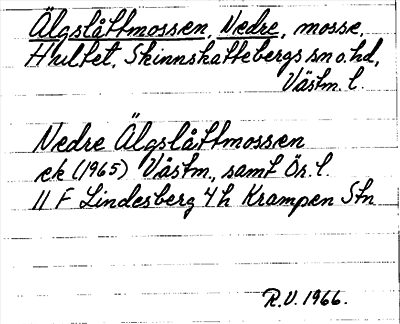 Älgslåttmossen, Nedre, mosse,
Hultet, Skinnskattebergs sn o. hd,
Västm. l.
Nedre Älgslåttmossen
ek (1965) Västm., samt Ör. l.
11 F Lindesberg 4 h Krampen Stn
R.V. 1966.